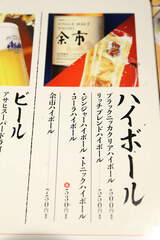 余市
ハイボール
ブラックニッカクリアハイボール
リッチブレンドハイボール
・ジンジャーハイボール・トニックハイボール
・コークハイボール 各530円
余市ハイボール 750円
ビール
アサヒスーパードライ